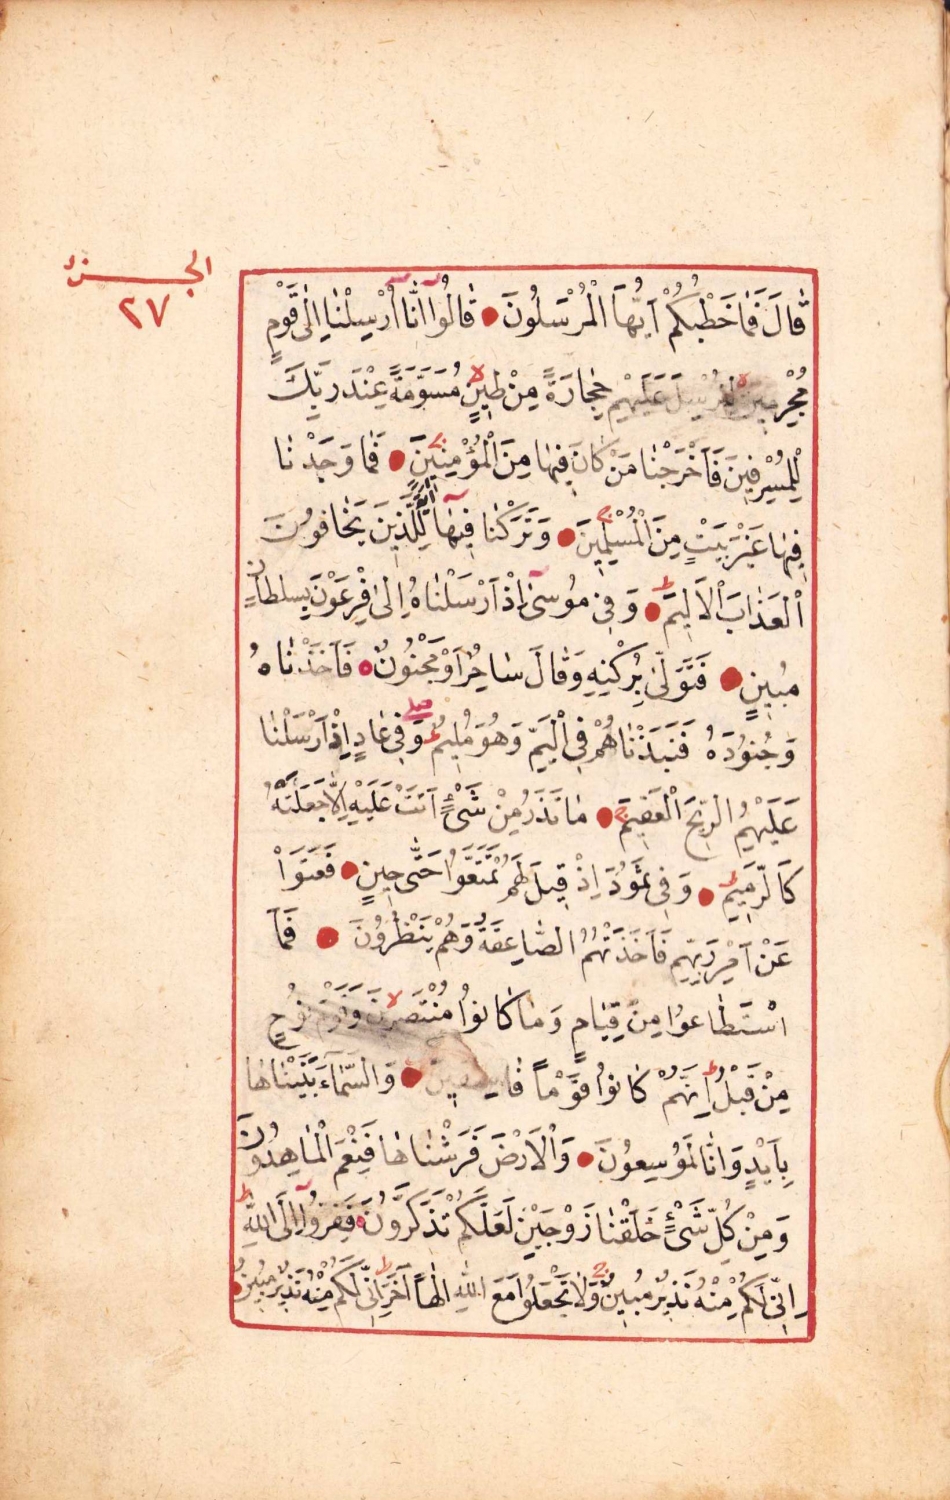 الجزء
٢٧
قَالَ فَمَا خَطْبُكُمْ اَيُّهَا الْمُرْسَلُونَ قَالُوا اِنَّا اُرْسِلْنَا اِلٰى قَوْمٍ
مُجْرِمِينَ لِنُرْسِلَ عَلَيْهِمْ حِجَارَةً مِنْ طِينٍ مُسَوَّمَةً عِنْدَ رَبِّكَ
لِلْمُسْرِفِينَ فَاَخْرَجْنَا مَنْ كَانَ فِيهَا مِنَ الْمُؤْمِنِينَ فَمَا وَجَدْنَا
فِيهَا غَيْرَ بَيْتٍ مِنَ الْمُسْلِمِينَ وَتَرَكْنَا فِيهَا اٰيَةً لِلَّذِينَ يَخَافُونَ
الْعَذَابَ الْاَلِيمَ وَفِي مُوسٰى اِذْ اَرْسَلْنَاهُ اِلٰى فِرْعَوْنَ بِسُلْطَانٍ
مُبِينٍ فَتَوَلّٰى بِرُكْنِهِ وَقَالَ سَاحِرٌ اَوْ مَجْنُونٌ فَاَخَذْنَاهُ
وَجُنُودَهُ فَنَبَذْنَاهُمْ فِي الْيَمِّ وَهُوَ مُلِيمٌ وَفِي عَادٍ اِذْ اَرْسَلْنَا
عَلَيْهِمُ الرِّيحَ الْعَقِيمَ مَا تَذَرُ مِنْ شَيْءٍ اَتَتْ عَلَيْهِ اِلَّا جَعَلَتْهُ
كَالرَّمِيمِ وَفِي ثَمُودَ اِذْ قِيلَ لَهُمْ تَمَتَّعُوا حَتّٰى حِينٍ فَعَتَوْا
عَنْ اَمْرِ رَبِّهِمْ فَاَخَذَتْهُمُ الصَّاعِقَةُ وَهُمْ يَنْظُرُونَ فَمَا
اسْتَطَاعُوا مِنْ قِيَامٍ وَمَا كَانُوا مُنْتَصِرِينَ وَقَوْمَ نُوحٍ
مِنْ قَبْلُ اِنَّهُمْ كَانُوا قَوْمًا فَاسِقِينَ وَالسَّمَاءَ بَنَيْنَاهَا
بِاَيْدٍ وَاِنَّا لَمُوسِعُونَ وَالْاَرْضَ فَرَشْنَاهَا فَنِعْمَ الْمَاهِدُونَ
وَمِنْ كُلِّ شَيْءٍ خَلَقْنَا زَوْجَيْنِ لَعَلَّكُمْ تَذَكَّرُونَ فَفِرُّوا اِلَى اللّٰهِ
اِنِّي لَكُمْ مِنْهُ نَذِيرٌ مُبِينٌ وَلَا تَجْعَلُوا مَعَ اللّٰهِ اِلٰهًا اٰخَرَ اِنِّي لَكُمْ مِنْهُ نَذِيرٌ مُبِينٌ